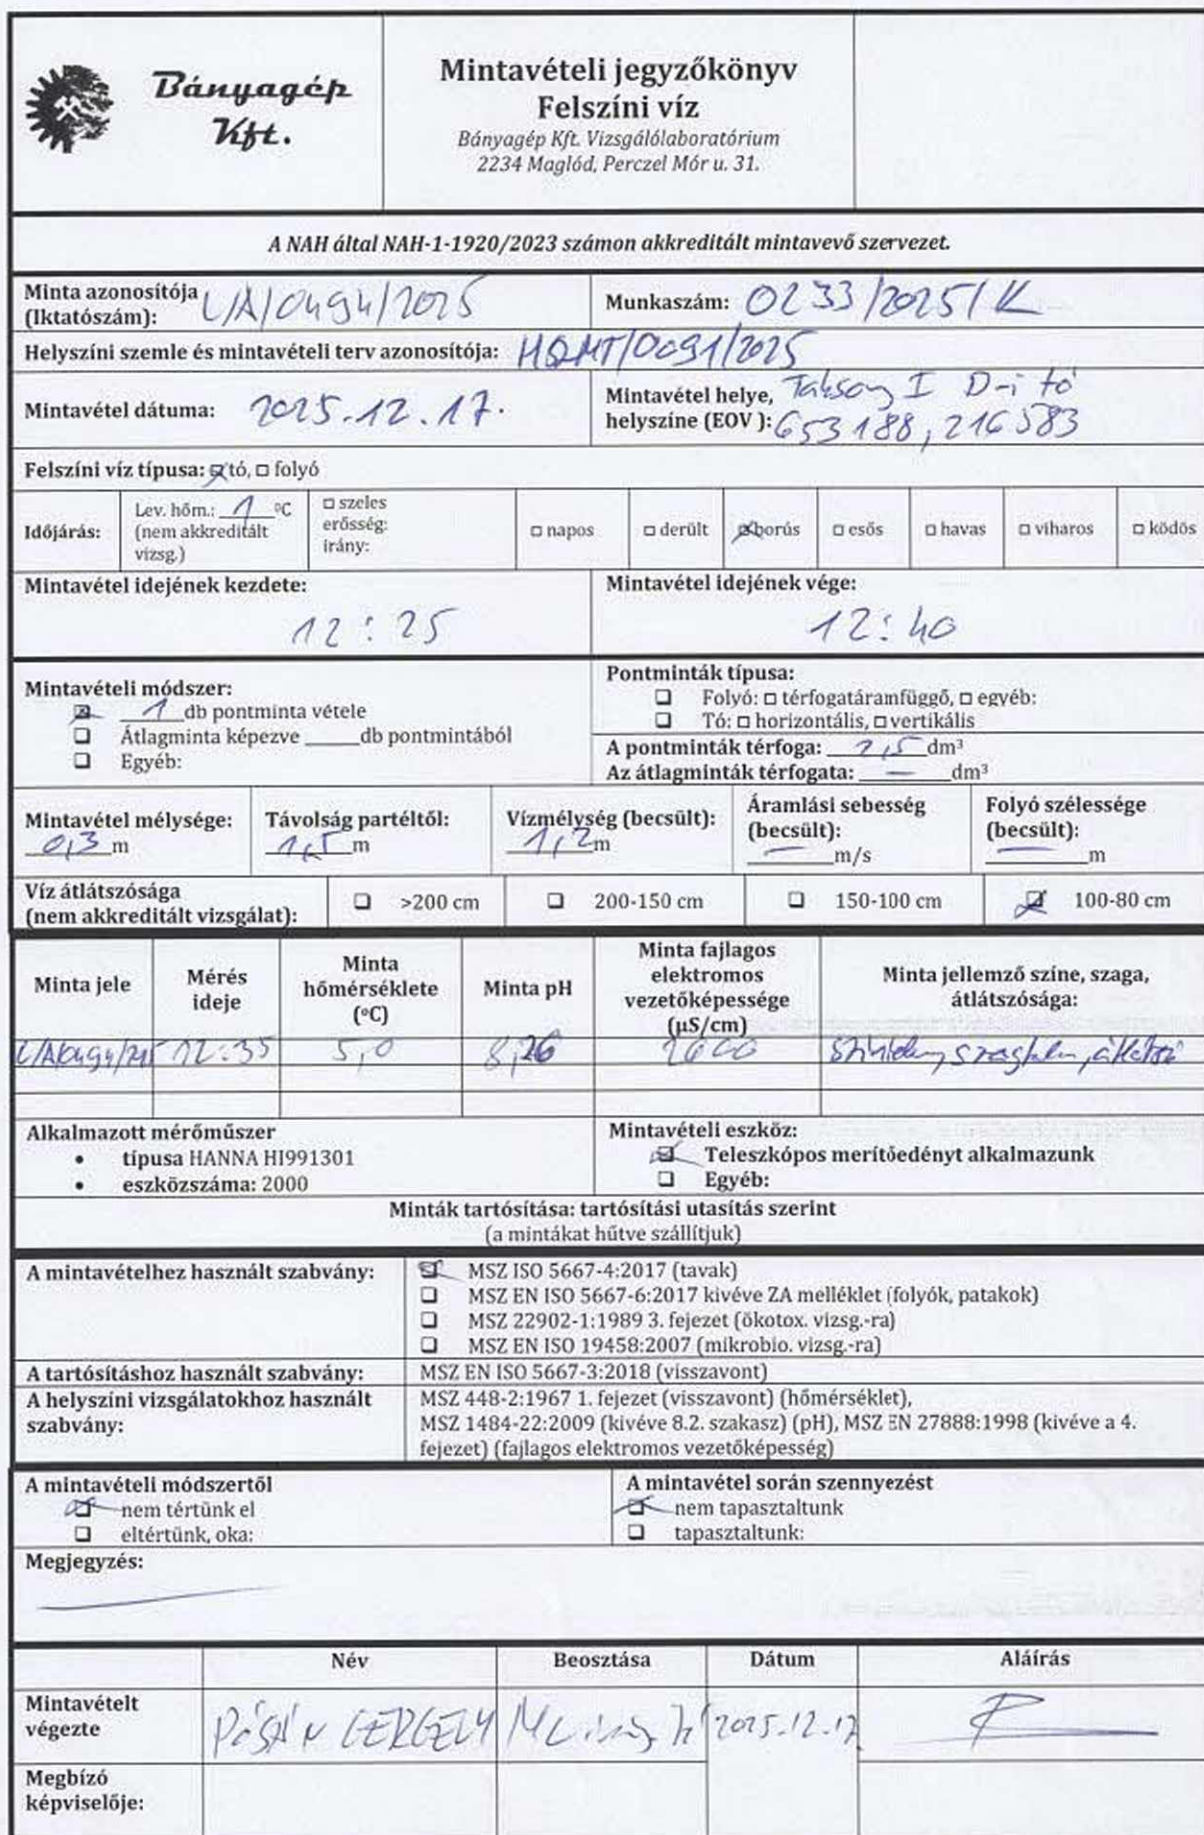 Bányagép
Kft.
Mintavételi jegyzőkönyv
Felszíni víz
Bányagép Kft. Vizsgálólaboratórium
2234 Maglód, Perczel Mór u. 31.
A NAH által NAH-1-1920/2023 számon akkreditált mintavevő szervezet.
Minta azonosítója (Iktatószám): L/A/0494/2025
Munkaszám: 0233/2025/K
Helyszíni szemle és mintavételi terv azonosítója: HQMT/0091/2025
Mintavétel dátuma: 2025.12.17.
Mintavétel helye, Taksony I D-i tó
helyszíne (EOV ): 653188, 216583
Felszíni víz típusa: ☒ tó, □ folyó
Időjárás:
Lev. hőm.: 1 °C
(nem akkreditált
vizsg.)
□ szeles
erősség:
irány:
□ napos
□ derült
☒ borús
□ esős
□ havas
□ viharos
□ ködös
Mintavétel idejének kezdete:
12:25
Mintavétel idejének vége:
12:40
Mintavételi módszer:
☒ 1 db pontminta vétele
❑ Átlagminta képezve _____db pontmintából
❑ Egyéb:
Pontminták típusa:
❑ Folyó: □ térfogatáramfüggő, □ egyéb:
❑ Tó: □ horizontális, □ vertikális
A pontminták térfoga: 2,5 dm³
Az átlagminták térfogata: — dm³
Mintavétel mélysége:
0,3 m
Távolság partéltől:
1,5 m
Vízmélység (becsült):
1,2 m
Áramlási sebesség
(becsült):
— m/s
Folyó szélessége
(becsült):
— m
Víz átlátszósága
(nem akkreditált vizsgálat):
❑ >200 cm
❑ 200-150 cm
❑ 150-100 cm
☒ 100-80 cm
Minta jele
Mérés
ideje
Minta
hőmérséklete
(°C)
Minta pH
Minta fajlagos
elektromos
vezetőképessége
(µS/cm)
Minta jellemző színe, szaga,
átlátszósága:
L/A/0494/25 12:35 5,0 8,26 színtelen, szagtalan, átlátszó
Alkalmazott mérőműszer
• típusa HANNA HI991301
• eszközszáma: 2000
Mintavételi eszköz:
☒ Teleszkópos merítőedényt alkalmazunk
❑ Egyéb:
Minták tartósítása: tartósítási utasítás szerint
(a mintákat hűtve szállítjuk)
A mintavételhez használt szabvány:
☒ MSZ ISO 5667-4:2017 (tavak)
❑ MSZ EN ISO 5667-6:2017 kivéve ZA melléklet (folyók, patakok)
❑ MSZ 22902-1:1989 3. fejezet (ökotox. vizsg.-ra)
❑ MSZ EN ISO 19458:2007 (mikrobio. vizsg.-ra)
A tartósításhoz használt szabvány:
MSZ EN ISO 5667-3:2018 (visszavont)
A helyszíni vizsgálatokhoz használt
szabvány:
MSZ 448-2:1967 1. fejezet (visszavont) (hőmérséklet),
MSZ 1484-22:2009 (kivéve 8.2. szakasz) (pH), MSZ EN 27888:1998 (kivéve a 4.
fejezet) (fajlagos elektromos vezetőképesség)
A mintavételi módszertől
☒ nem tértünk el
❑ eltértünk, oka:
A mintavétel során szennyezést
☒ nem tapasztaltunk
❑ tapasztaltunk:
Megjegyzés:
Név
Beosztása
Dátum
Aláírás
Mintavételt
végezte
GERGELY
2025.12.17
Megbízó
képviselője: